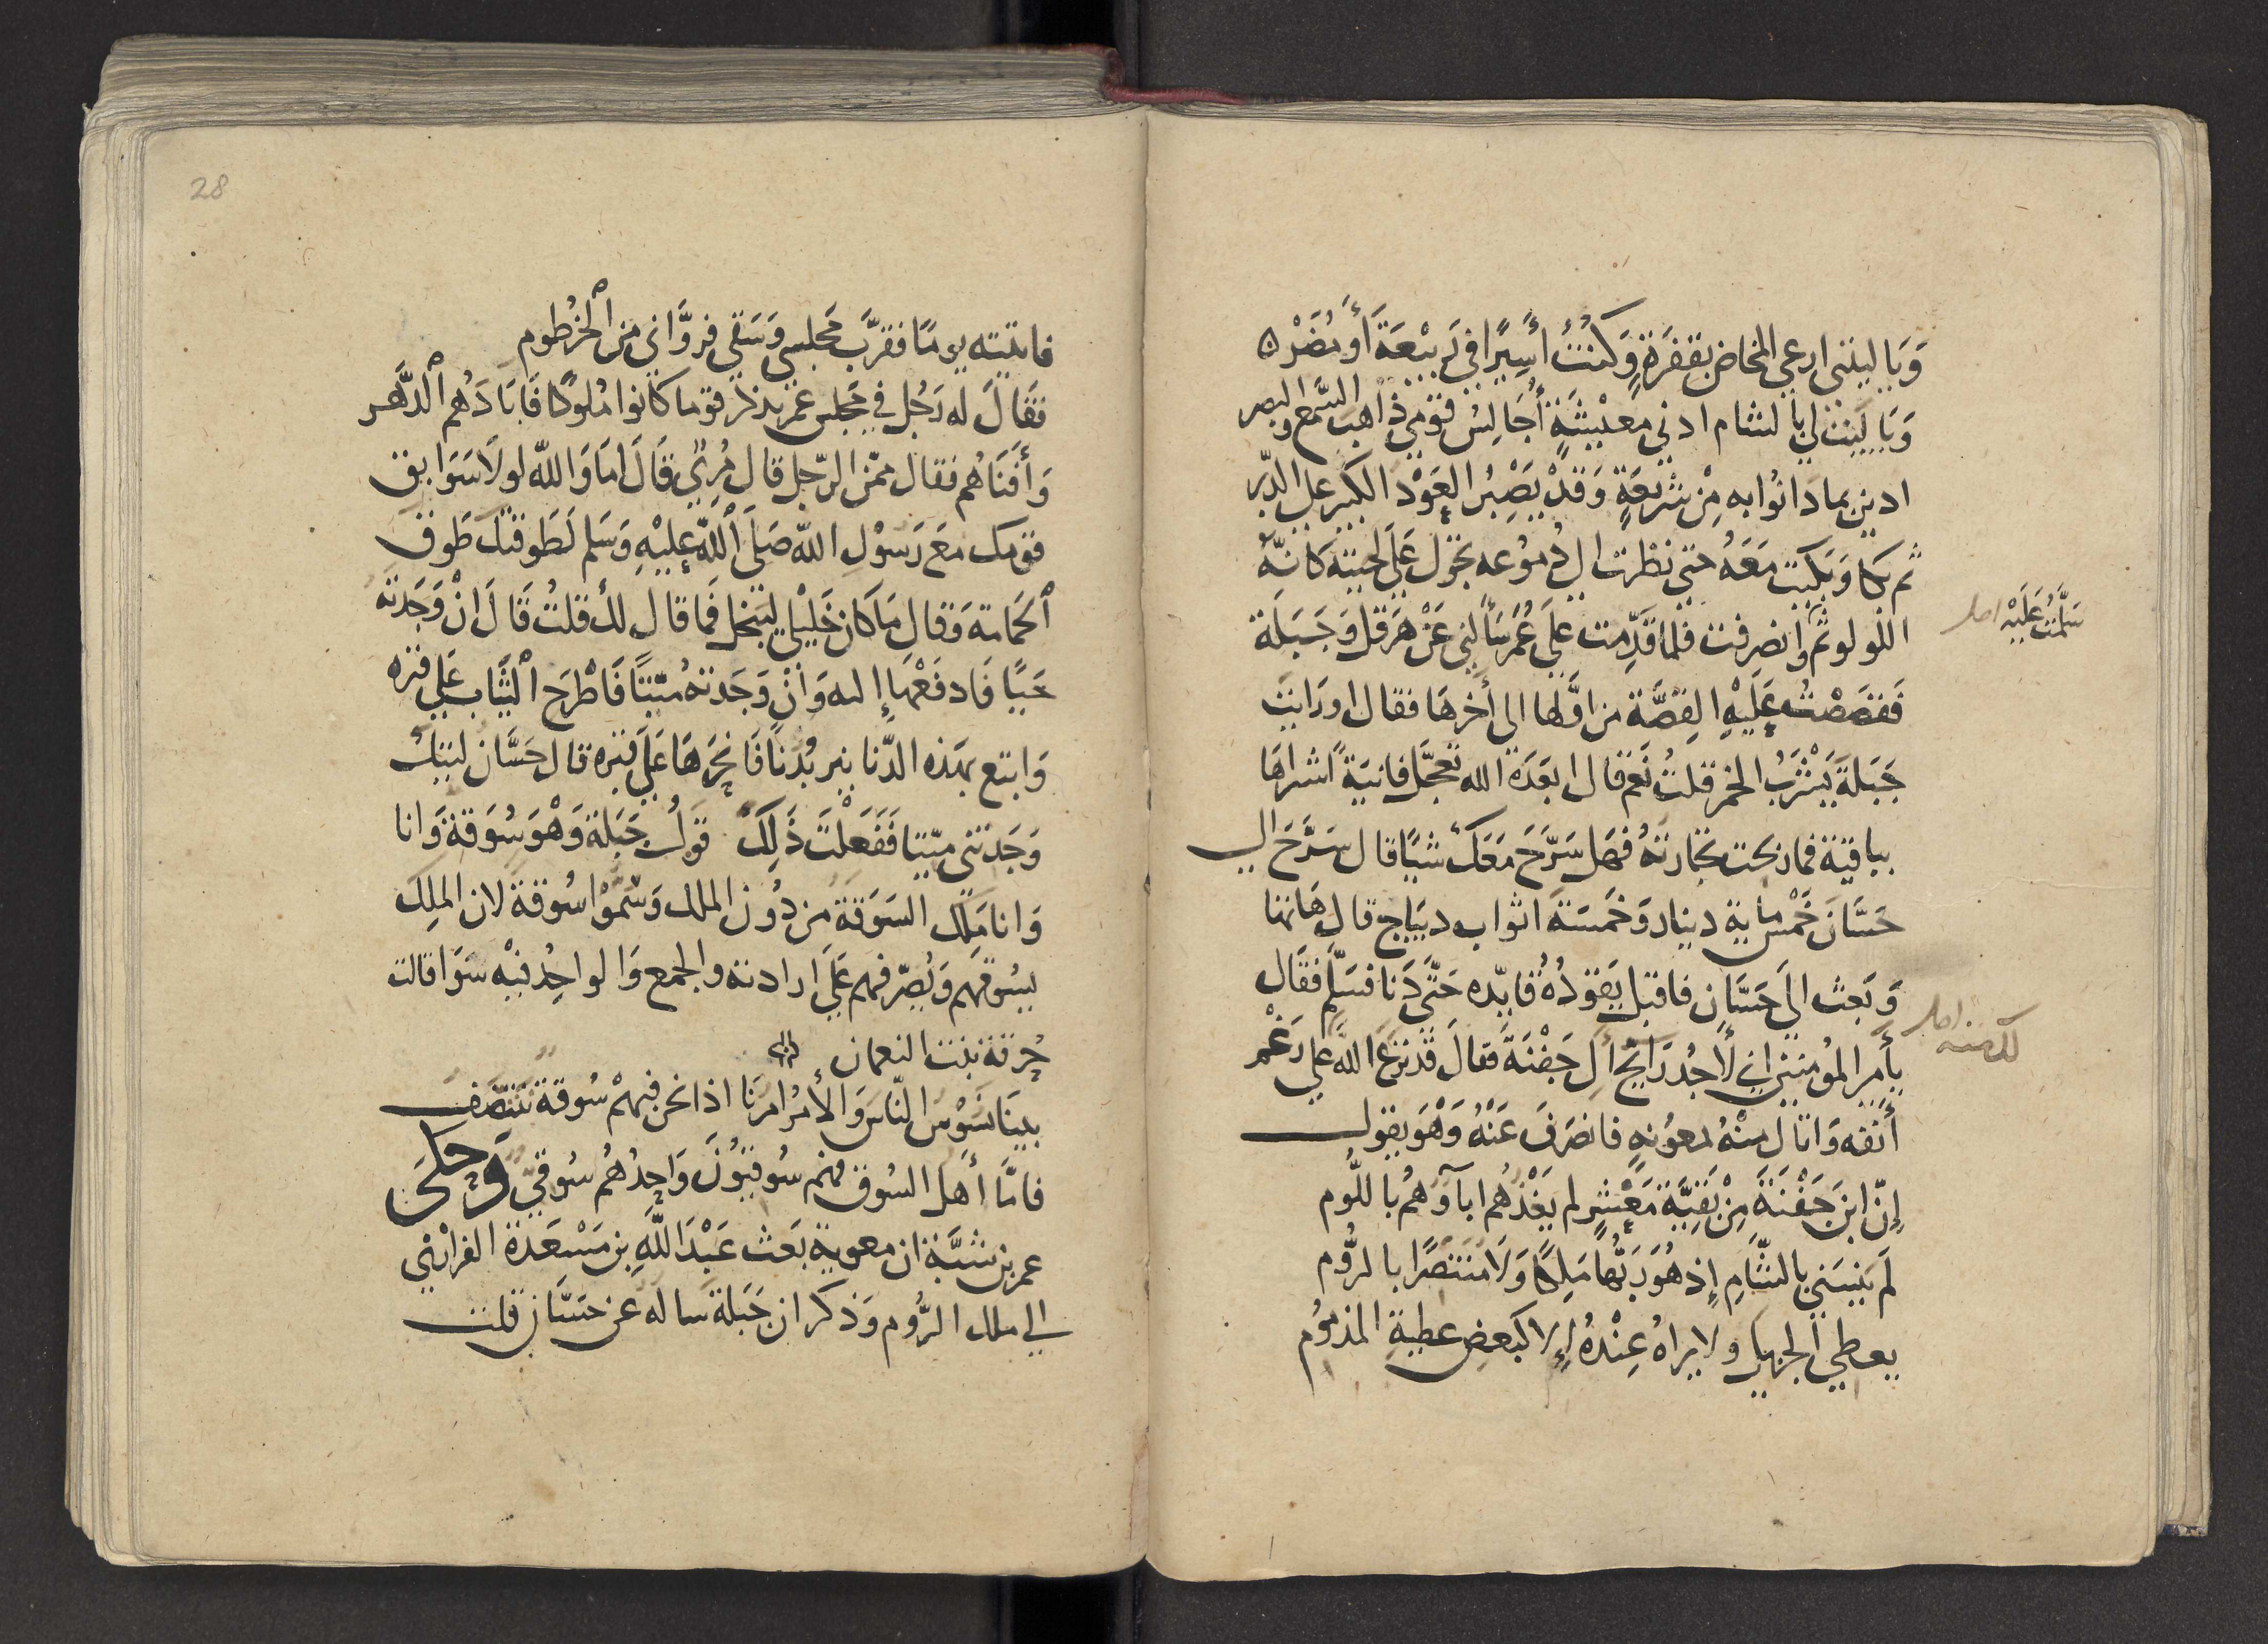 وَيَا ليتنى ارعى المخاض بقفرَةٍ وَكنتُ أسِيرًا فى رَبيْعَةَ أو مُضَرْ ه
وَيَا لَيْت لى بالشام ادنى معيْشَةٍ أُجَالِسُ قوْمى ذاهبَ السَّمع والبصر
ادين بما دانُوا به مِنْ شريعَةٍ وَقدْ يَصْبِرُ العَوْد الكبير على الدبر
ثم بكا وَبَكيت مَعَهُ حتى نظرت الى دموُعه تجول عَلى لحيته كانهُ
اللولو ثم وانصرفت فلما قدِّمت على عُمَر سَألنى عَنْ هَرَقل وَجَبَلَة
سَلَّمْتُ عَلَيْه اصل
فَقصَصْتُ عَلَيْهِ القِصَّة من اوَّلها الى أخرهَا فقال اورَايت
جَبَلَةَ يَشْرَبُ الخمر قلتُ نَعم قال ابعَدَهُ الله تعجَّل فانيَة اشتراهَا
بباقيَة فما ربحت تجَارتهُ فهَل سَرَّحَ مَعَكَ شيًا قال سَرَّحَ الى
حَسَّانَ خمْس ماية دينار وَخمسَة اثواب ديبَاج قال هَاتها
وَبَعث الى حَسَّان فاقبل يَقودُهُ قايده حَتَّى دَنا فسَلم فقال
يا أمير المؤمنين انى لاجدُ رَايحُ ألِ جَفْنَةَ فقالَ قد نزعَ اللهُ على رَغْم
أنفه وَاتا ل منْهُ لمعوُنهِ فانصَرَفَ عَنْهُ وَهْوَ يقول
إنّ ابن جَفْنَةَ مِنْ بَقِيَّة مَعْشرٍ لم يَغْذُهم ابآؤهُم باللُّوم
لَم يَنْسَنى بالشَّامِ إذ هُوَ رَبُّها مَلِكًا وَلَا متنَصّرًا بالرُّوم
يعطى الجزيل ولا يراهُ عِنْدَهُ إلا كبَعض عطيةِ المذموُم
فاتيته يومًا فقرَّبَ مَجلسى وَسَقى فروَّانى من الخرطوم
فقَالَ له رَجُل فى مَجلس عمَر تذكر قومًا كانوا مُلوكًا فَابَادَهُم الدَّهر
وَأفنَاهُم فقال ممّن الرّجل قال مُزنىٌ قَالَ امَا وَالله لولا سَوَابق
قومك معَ رَسوْلِ الله صَلى الله عليْهِ وَسَلم لَطوقتك طَوق
الحَمامة وَقال مَا كان خَليْلى ليَبْخل فمَا قال لك قلتُ قَالَ انْ وَجَدته
حَيًا فَادفعْهَا إليه وَانْ وَجَدتهُ ميّتًا فَاطرَح الثياب عَلى قبره
وَابتع بهَذه الدّنانير بُدْنًا فَانحَرهَا عَلى قبْره قال حَسَّان ليتك
وَجَدتنى ميّتا فَفَعَلْتَ ذَلِكَ قولُ جَبَلة وَهْوَ سُوقةَ وَانا
وَانا مَلِك السَوَقة من دُونِ الملك وَسُمّوا سُوقة لان الملِك
يَسُوقهم وَيُصرّفهم عَلى ارادته والجمع وَالواحِدُ فيْه سوَا قالت
حُرقة بنت النعمان
بينَا نَسُوْسُ النّاسَ وَالأمرُ امرُنا اذا نحن فيهمْ سُوقة نتنَصَّف
فامَّا أهَل السُوق فهم سُوقيُّونَ وَاحِدُهُم سُوقىّ وَحكَى
عمر بن شبَّة ان معوية بعَث عَبْدَ اللهِ بن مَسْعَدَة الفزارىّ
الى ملك الرُّوم وَذكر ان جَبَلة سَاله عَن حسَّان قلت
28